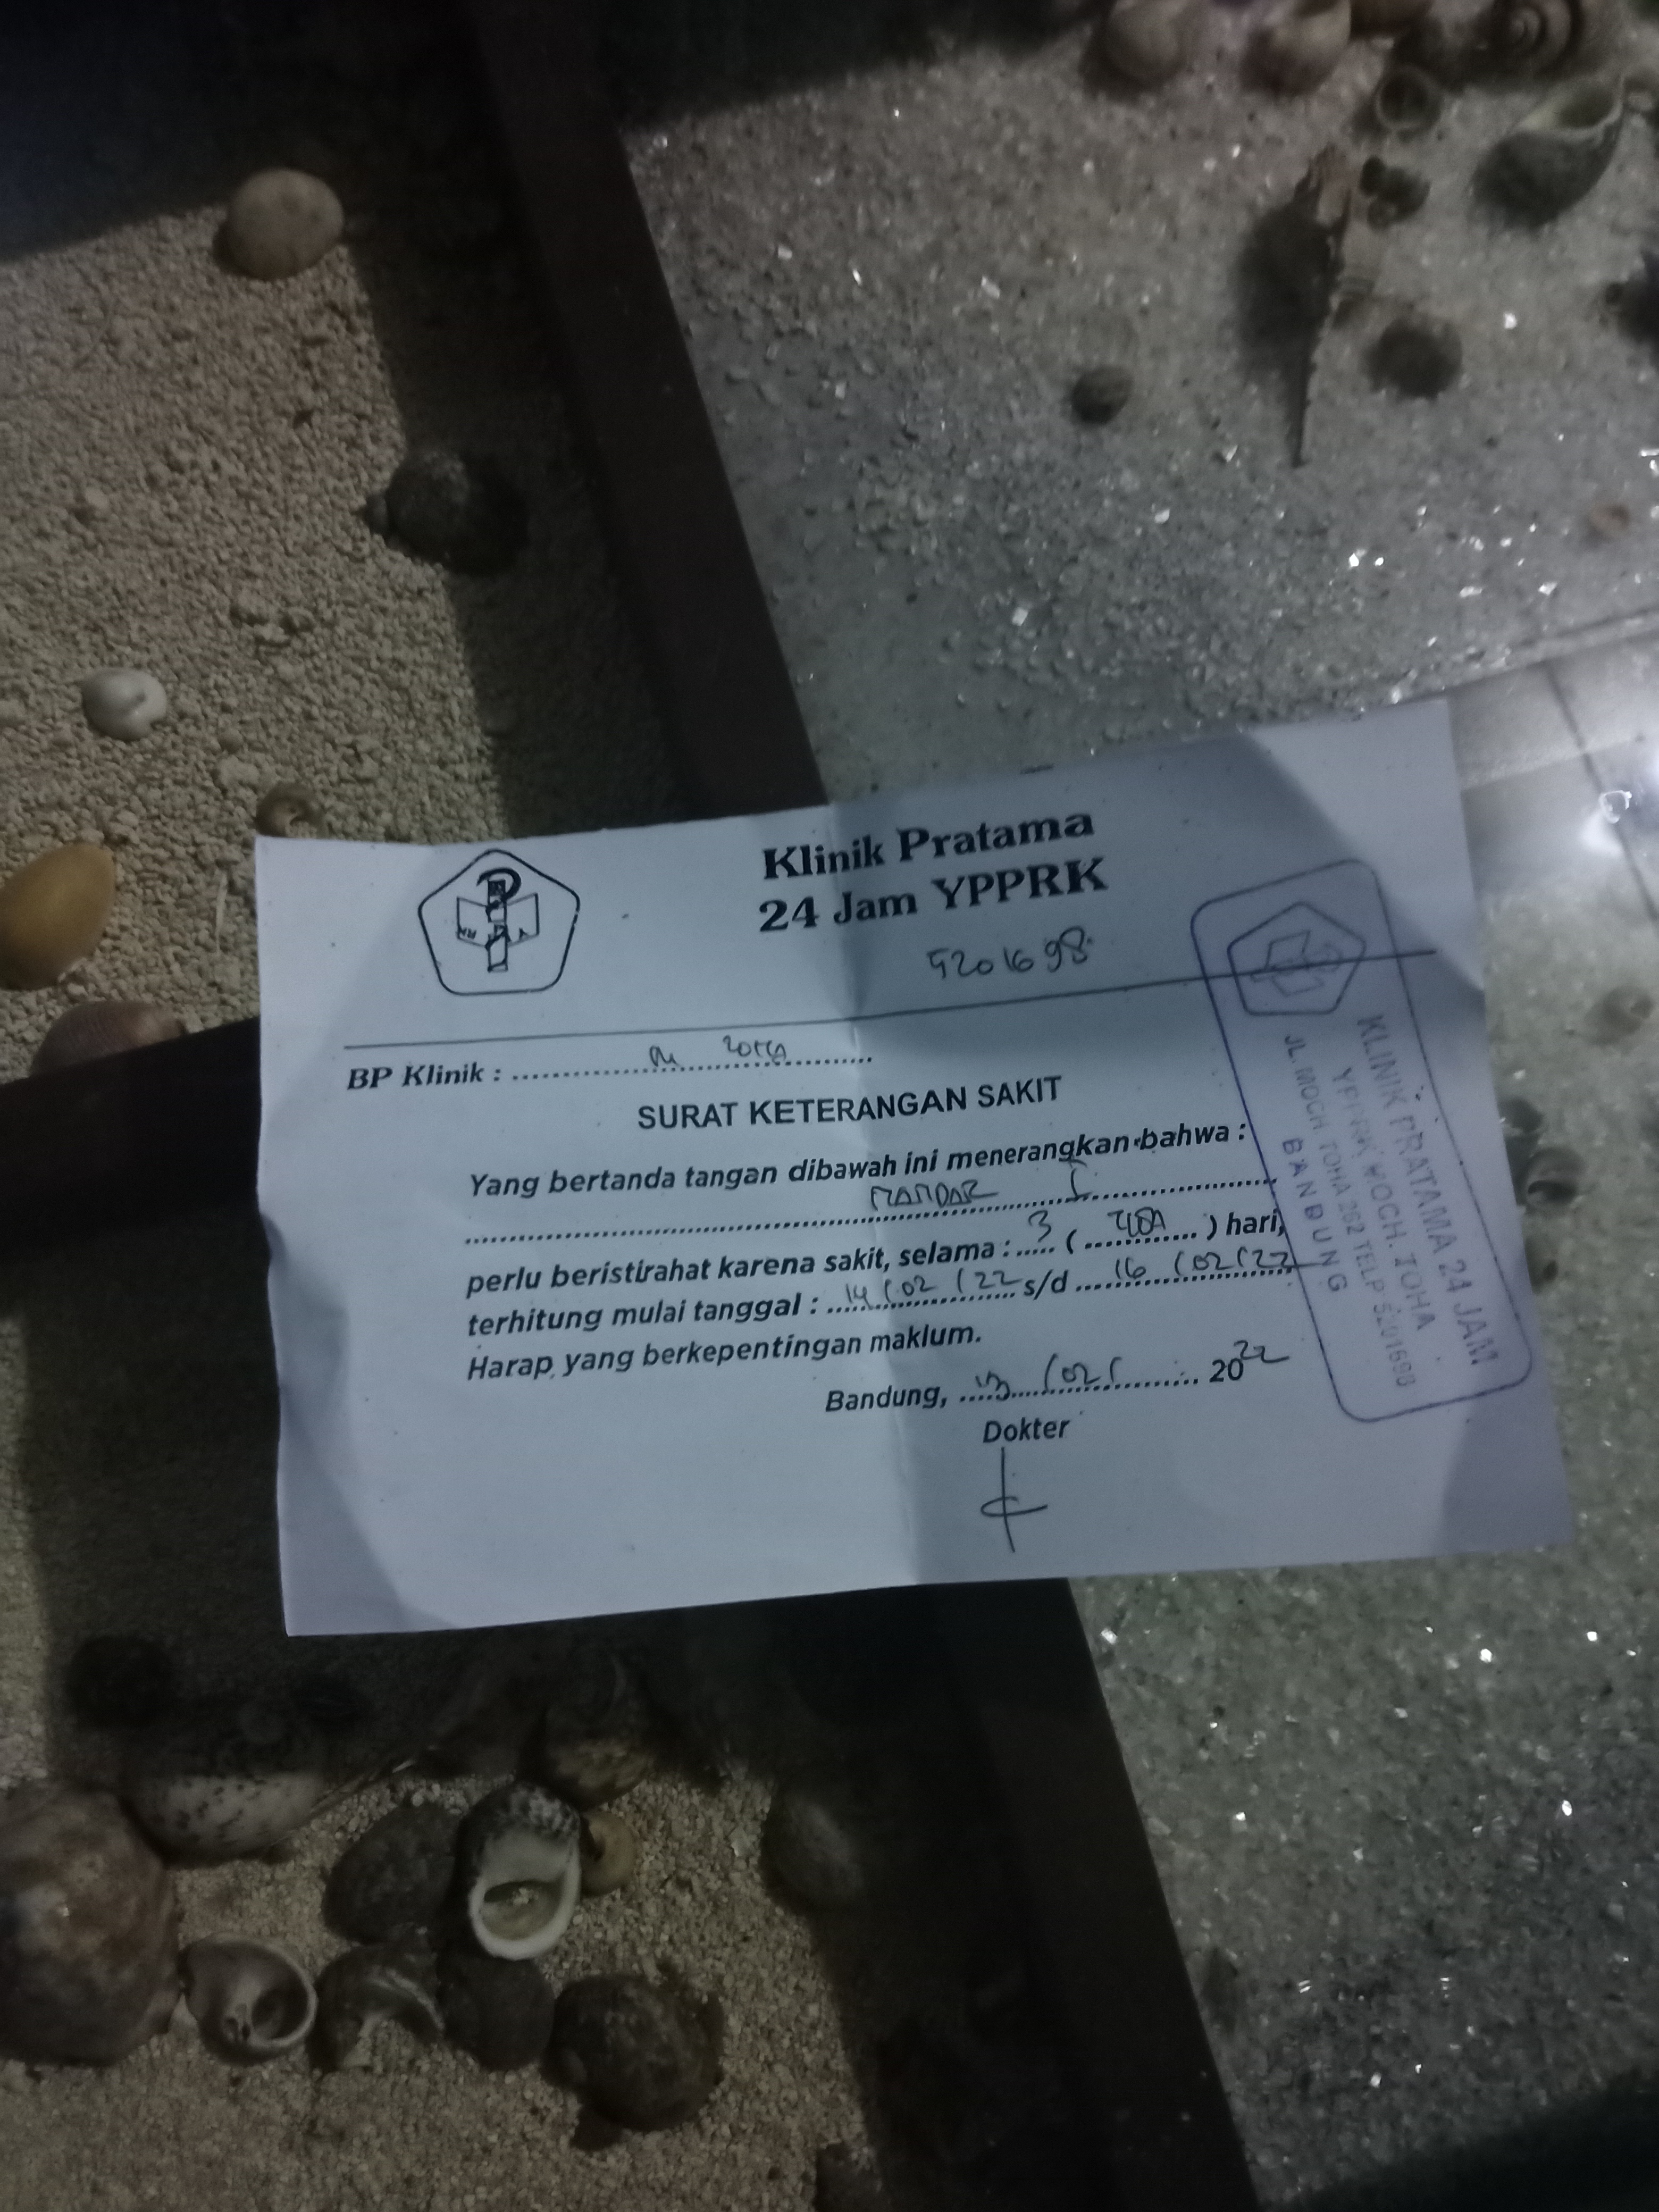 Klinik Pratama
24 Jam YPPRK
5201698
BP Klinik : ........................
SURAT KETERANGAN SAKIT
Yang bertanda tangan dibawah ini menerangkan bahwa :
perlu beristirahat karena sakit, selama : 3 ( TIGA ) hari,
terhitung mulai tanggal : 14/02/22 s/d 16/02/22
Harap yang berkepentingan maklum.
Bandung, 2022
Dokter
KLINIK PRATAMA 24 JAM
YPPRK MOCH. TOHA
JL. MOCH TOHA 262 TELP 5201698
BANDUNG